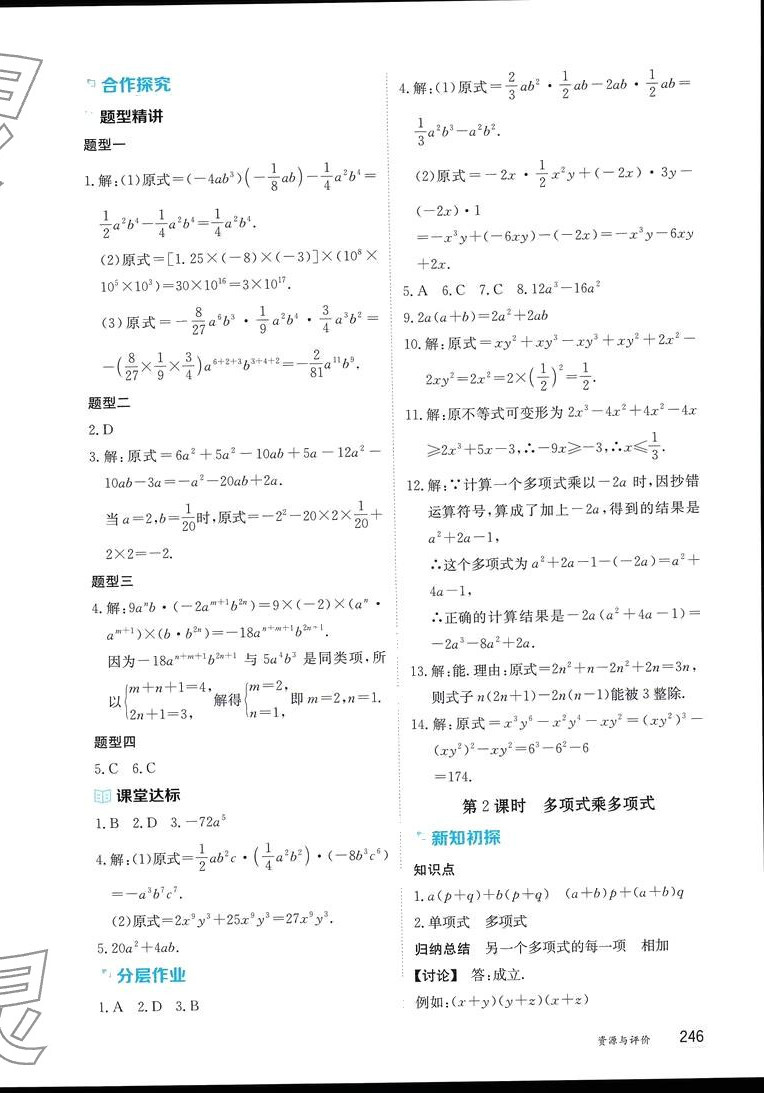 合作探究
题型精讲
题型一
1.解:(1)原式=(-4ab³)(-1/8ab)-1/4a²b⁴=
1/2a²b⁴-1/4a²b⁴=1/4a²b⁴.
(2)原式=[1.25×(-8)×(-3)]×(10⁸×
10⁵×10³)=30×10¹⁶=3×10¹⁷.
(3)原式=-8/27a⁶b³·1/9a²b⁴·3/4a³b²=
-(8/27×1/9×3/4)a⁶⁺²⁺³b³⁺⁴⁺²=-2/81a¹¹b⁹.
题型二
2.D
3.解:原式=6a²+5a²-10ab+5a-12a²-
10ab-3a=-a²-20ab+2a.
当a=2,b=1/20时,原式=-2²-20×2×1/20+
2×2=-2.
题型三
4.解:9aⁿb·(-2aᵐ⁺¹b²ⁿ)=9×(-2)×(aⁿ·
aᵐ⁺¹)×(b·b²ⁿ)=-18aⁿ⁺ᵐ⁺¹b²ⁿ⁺¹.
因为-18aⁿ⁺ᵐ⁺¹b²ⁿ⁺¹与5a⁴b³是同类项,所
以{m+n+1=4, 2n+1=3, 解得{m=2, n=1, 即m=2,n=1.
题型四
5.C 6.C
课堂达标
1.B 2.D 3.-72a⁵
4.解:(1)原式=1/2ab²c·(1/4a²b²)·(-8b³c⁶)
=-a³b⁷c⁷.
(2)原式=2x⁹y³+25x⁹y³=27x⁹y³.
5.20a²+4ab.
分层作业
1.A 2.D 3.B
4.解:(1)原式=2/3ab²·1/2ab-2ab·1/2ab=
1/3a²b³-a²b².
(2)原式=-2x·1/2x²y+(-2x)·3y-
(-2x)·1
=-x³y+(-6xy)-(-2x)=-x³y-6xy
+2x.
5.A 6.C 7.C 8.12a³-16a²
9.2a(a+b)=2a²+2ab
10.解:原式=xy²+xy³-xy³+xy²+2x²-
2xy²=2x²=2×(1/2)²=1/2.
11.解:原不等式可变形为2x³-4x²+4x²-4x
≥2x³+5x-3,∴-9x≥-3,∴x≤1/3.
12.解:∵计算一个多项式乘以-2a时,因抄错
运算符号,算成了加上-2a,得到的结果是
a²+2a-1,
∴这个多项式为a²+2a-1-(-2a)=a²+
4a-1,
∴正确的计算结果是-2a(a²+4a-1)=
-2a³-8a²+2a.
13.解:能.理由:原式=2n²+n-2n²+2n=3n,
则式子n(2n+1)-2n(n-1)能被3整除.
14.解:原式=x³y⁶-x²y⁴-xy²=(xy²)³-
(xy²)²-xy²=6³-6²-6
=174.
第2课时 多项式乘多项式
新知初探
知识点
1.a(p+q)+b(p+q) (a+b)p+(a+b)q
2.单项式 多项式
归纳总结 另一个多项式的每一项 相加
【讨论】 答:成立.
例如:(x+y)(y+z)(x+z)
资源与评价 246